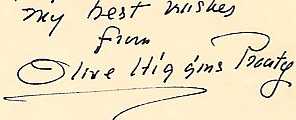 my best wishes
from
Olive Higgins Prouty